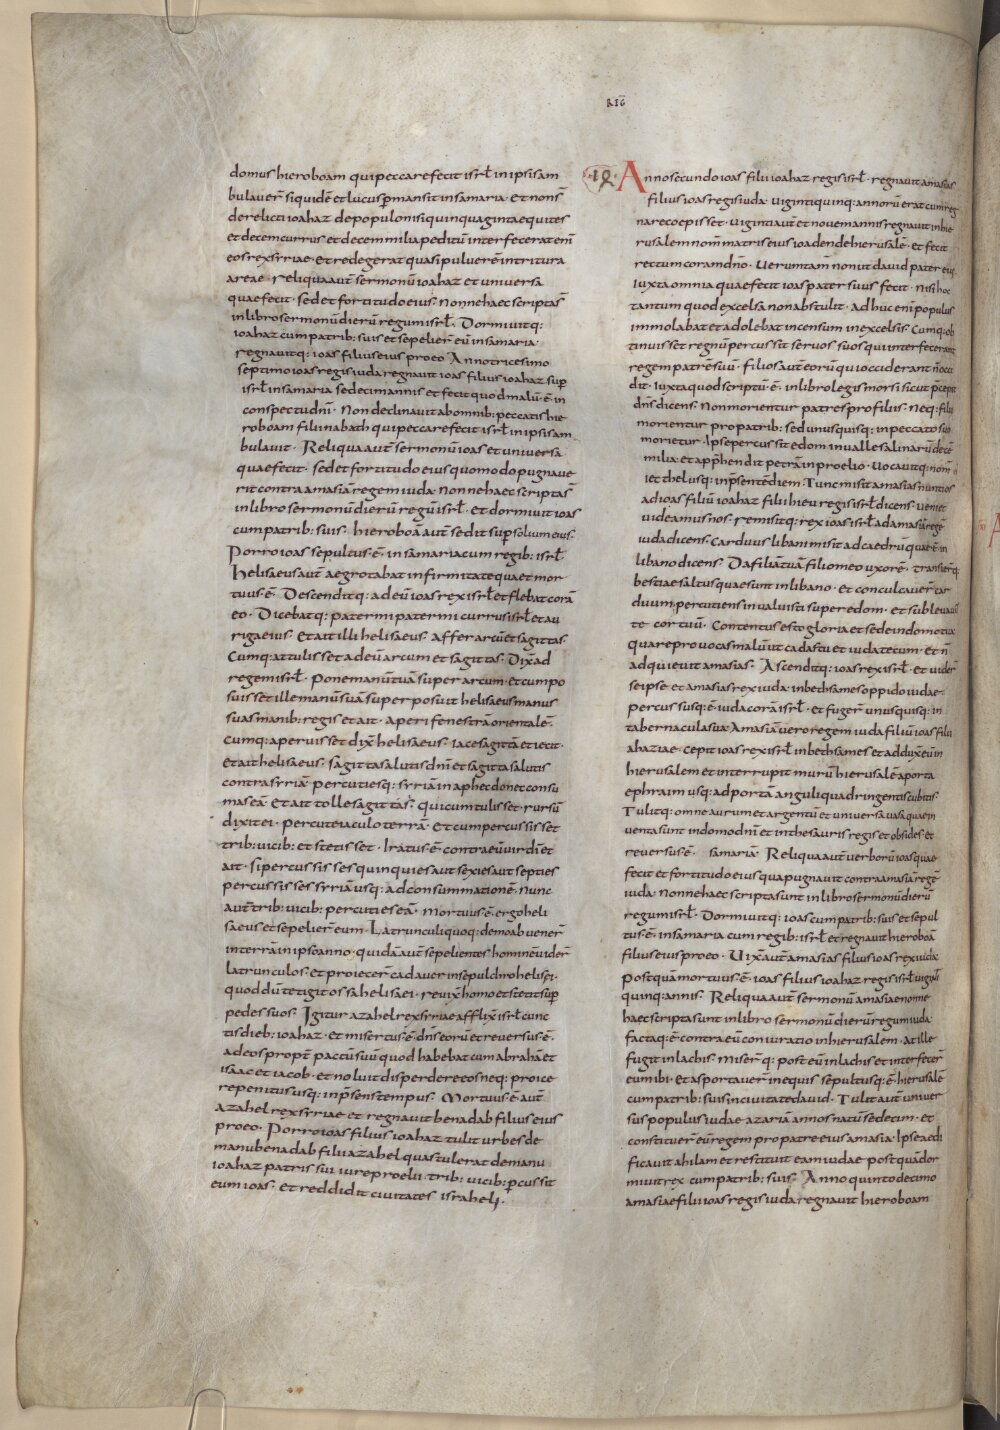 REG̅
domus hieroboam qui peccare fecit isrł in ipsis am
bulauer̄ siquidē et lucus p̄mansit in samaria· et non s̄
derelicti ioahaz de populo nisi quinquaginta equites
et decem currus et decem milia peditū interfecerat eni̅
eos rex syriae· et redegerat quasi puluerē in tritura
areae· reliqua aut̄ sermonū ioahaz et uniuersa
quae fecit· sed et fortitudo eius· nonne haec scripta s̄
in libro sermonū dierū regum isrł· Dormiuitq:
ioahaz cum patrib: suis et sepelier̄ eū in samaria·
regnauitq: ioas filius eius pro eo· Anno tricesimo
septimo ioas regis iuda regnauit ioas filius ioahaz sup̄
isrł in samaria sedecim annis et fecit quod malū·ē·in
conspectu dni̅· Non declinauit ab omnib: peccatis hie
roboam filii nabath qui peccare fecit isrł in ipsis am
bulauit· Reliqua aut̄ sermonū ioas et uniuersa
quae fecit· sed et fortitudo eius quomodo pugnaue
rit contra amasiā regem iuda· nonne haec scripta s̄
in libro sermonū dierū regū isrł· et dormiuit ioas
cum patrib: suis· hieroboā aut̄ sedit sup̄ solium eius·
Porro ioas sepultus·ē·in samaria cum regib: isrł·
Helisaeus aut̄ aegrotabat infirmitate qua et mor
tuus·ē· Descenditq: ad eū ioas rex isrł et flebat corā
eo· Dicebatq: pater mi pater mi currus isrł et au
riga eius· Et ait illi helisaeus· affer arcū et sagittas
Cumq: attulisset ad eū arcum et sagittas· Dix̄ ad
regem isrł· Pone manū tuā super arcum· et cum po
suisset ille manū suā superposuit helisaeus manus
suas manib: regis et ait· aperi fenestrā orientalē·
Cumq: aperuisset dix̄ helisaeus· iace sagittā et iecit·
et ait helisaeus· sagitta salutis dni̅ et sagitta salutis
contra syriā· percutiesq: syriā in aphec donec consu
mas eā· Et ait tolle sagittas· qui cum tulisset· rursū
dixit ei· percute iaculo terrā· Et cum percussisset
trib: uicib: et stetisset· Iratus·ē·contra eū uir dī et
ait· si percussisses quinquies aut sexies aut septies
percussisses syriā usq: ad consummationē· nunc
aut̄ trib: uicib: percuties eā· mortuus·ē·ergo heli
saeus et sepelier̄ eum· Latrunculi quoq: de moab uener̄
in terrā in ipso anno· quidā aut̄ sepelientes hominē uider̄
latrunculos· et proiecer̄ cadauer in sepulchro helisei·
quod dū tetigit ossa helisaei· reuix̄ homo et stetit sup̄
pedes suos· Igitur azahel rex syriae afflix̄ isrł cunc
tis dieb: ioahaz· et misertus·ē·dn̄s eorū et reuersus·ē·
ad eos propt̄ pactū suū quod habebat cum abrahā et
isaac et iacob· et noluit disperdere eos neq: proice
re penitus usq: in p̄sens tempus· Mortuus·ē·aut̄
azahel rex syriae et regnauit benadab filius eius
pro eo· Porro ioas filius ioahaz tulit urbes de
manu benadab filii azahel quas tulerat de manu
ioahaz patris sui iure proelii· trib: uicib: p̄cussit
eum ioas· et reddidit ciuitates israheli·
Anno secundo ioas filii ioahaz regis isrł· regnauit amasias
filius ioas regis iuda· uiginti quinq: annorū erat cum reg
nare coepisset· uiginti aut̄ et nouem annis regnauit in hie
rusalem nom̄ matris eius ioaden de hierusalē· et fecit
rectum coram dn̄o· Ueruntam̄ non ut dauid pater eius
Iuxta omnia quae fecit ioas pater suus fecit· Nisi hoc
tantum quod excelsa non abstulit· adhuc eni̅ populus
immolabat et adolebat incensum in excelsis· Cumq: ob
tinuisset regnū percussit seruos suos qui interfecerant
regem patrē suū· filios aut̄ eorū qui occiderant n̄ occi
dit· iuxta quod scriptū·ē·in libro legis morsi sicut p̄cepit
dn̄s dicens· non morientur patres pro filiis· Neq: filii
morientur pro patrib: sed unusquisq: in peccato suo
morietur· Ipse percussit edom in ualle salinarū decē
milia· et app̄hendit petrā in proelio· uocauitq: nom̄
iecthel usq: in p̄sentē diem· Tunc misit amasias nuntios
ad ioas filiū ioahaz filii hieu regis isrł dicens· ueni et
uideamus nos· remisitq: rex ioas isrł ad amasiā regē
iuda dicens· Carduus libani misit ad caedrū quae·ē·in
libano dicens· Da filiā tuā filio meo uxorē· transier̄q:
bestiae saltus quae sunt in libano· et conculcauer̄ car
duum· percutiens inualuisti super edom· et subleuauit
te cor tuū· Contentus esto gloria et sede in domo tua
quare prouocas malū ut cadas tu et iuda tecum· et n̄
adquieuit amasias· Ascenditq: ioas rex isrł· et uider̄
se ipse et amasias rex iuda in bethsames oppido iudae·
percussusq:·ē·iuda corā isrł· et fuger̄ unusquisq: in
tabernacula sua· Amasiā uero regem iuda filiū ioas filii
ahaziae· cepit ioas rex isrł in bethsames et addux̄ eum
hierusalem et interrupit murū hierusalē a porta
ephraim usq: ad portā anguli quadringentis cubitis·
Tulitq: omne aurum et argentū et uniuersa uasa quae in
uenta sunt in domo dni̅ et in thesauris regis et obsides et
reuersus·ē· samariā· Reliqua aut̄ uerborū ioas quae
fecit et fortitudo eius qua pugnauit contra amasiā regē
iuda· Nonne haec scripta sunt in libro sermonū dierū
regum isrł· Dormiuitq: ioas cum patrib: suis et sepul
tus·ē·in samaria cum regib: isrł et regnauit hieroboā
filius eius pro eo· Uix̄ aut̄ amasias filius ioas rex iuda·
Postquā mortuus·ē·ioas filius ioahaz regis isrł uiginti
quinq: annis· Reliqua aut̄ sermonū amasiae nonne
haec scripta sunt in libro sermonū dierū regum iuda·
factaq:·ē·contra eū coniuratio in hierusalem· at ille
fugit in lachis· miser̄q: post eū in lachis et interfecer̄
eum ibi· et asportauer̄ in equis sepultusq:·ē·hierusalē
cum patrib: suis in ciuitate dauid· Tulit aut̄ uniuer
sus populus iudae azariā annos natū sedecim· et
constituer̄ eū regem pro patre eius amasia· Ipse aedi
ficauit ahilam et restituit eam iudae· postquā dor
miuit rex cum patrib: suis· Anno quinto decimo
amasiae filii ioas regis iuda regnauit hieroboam